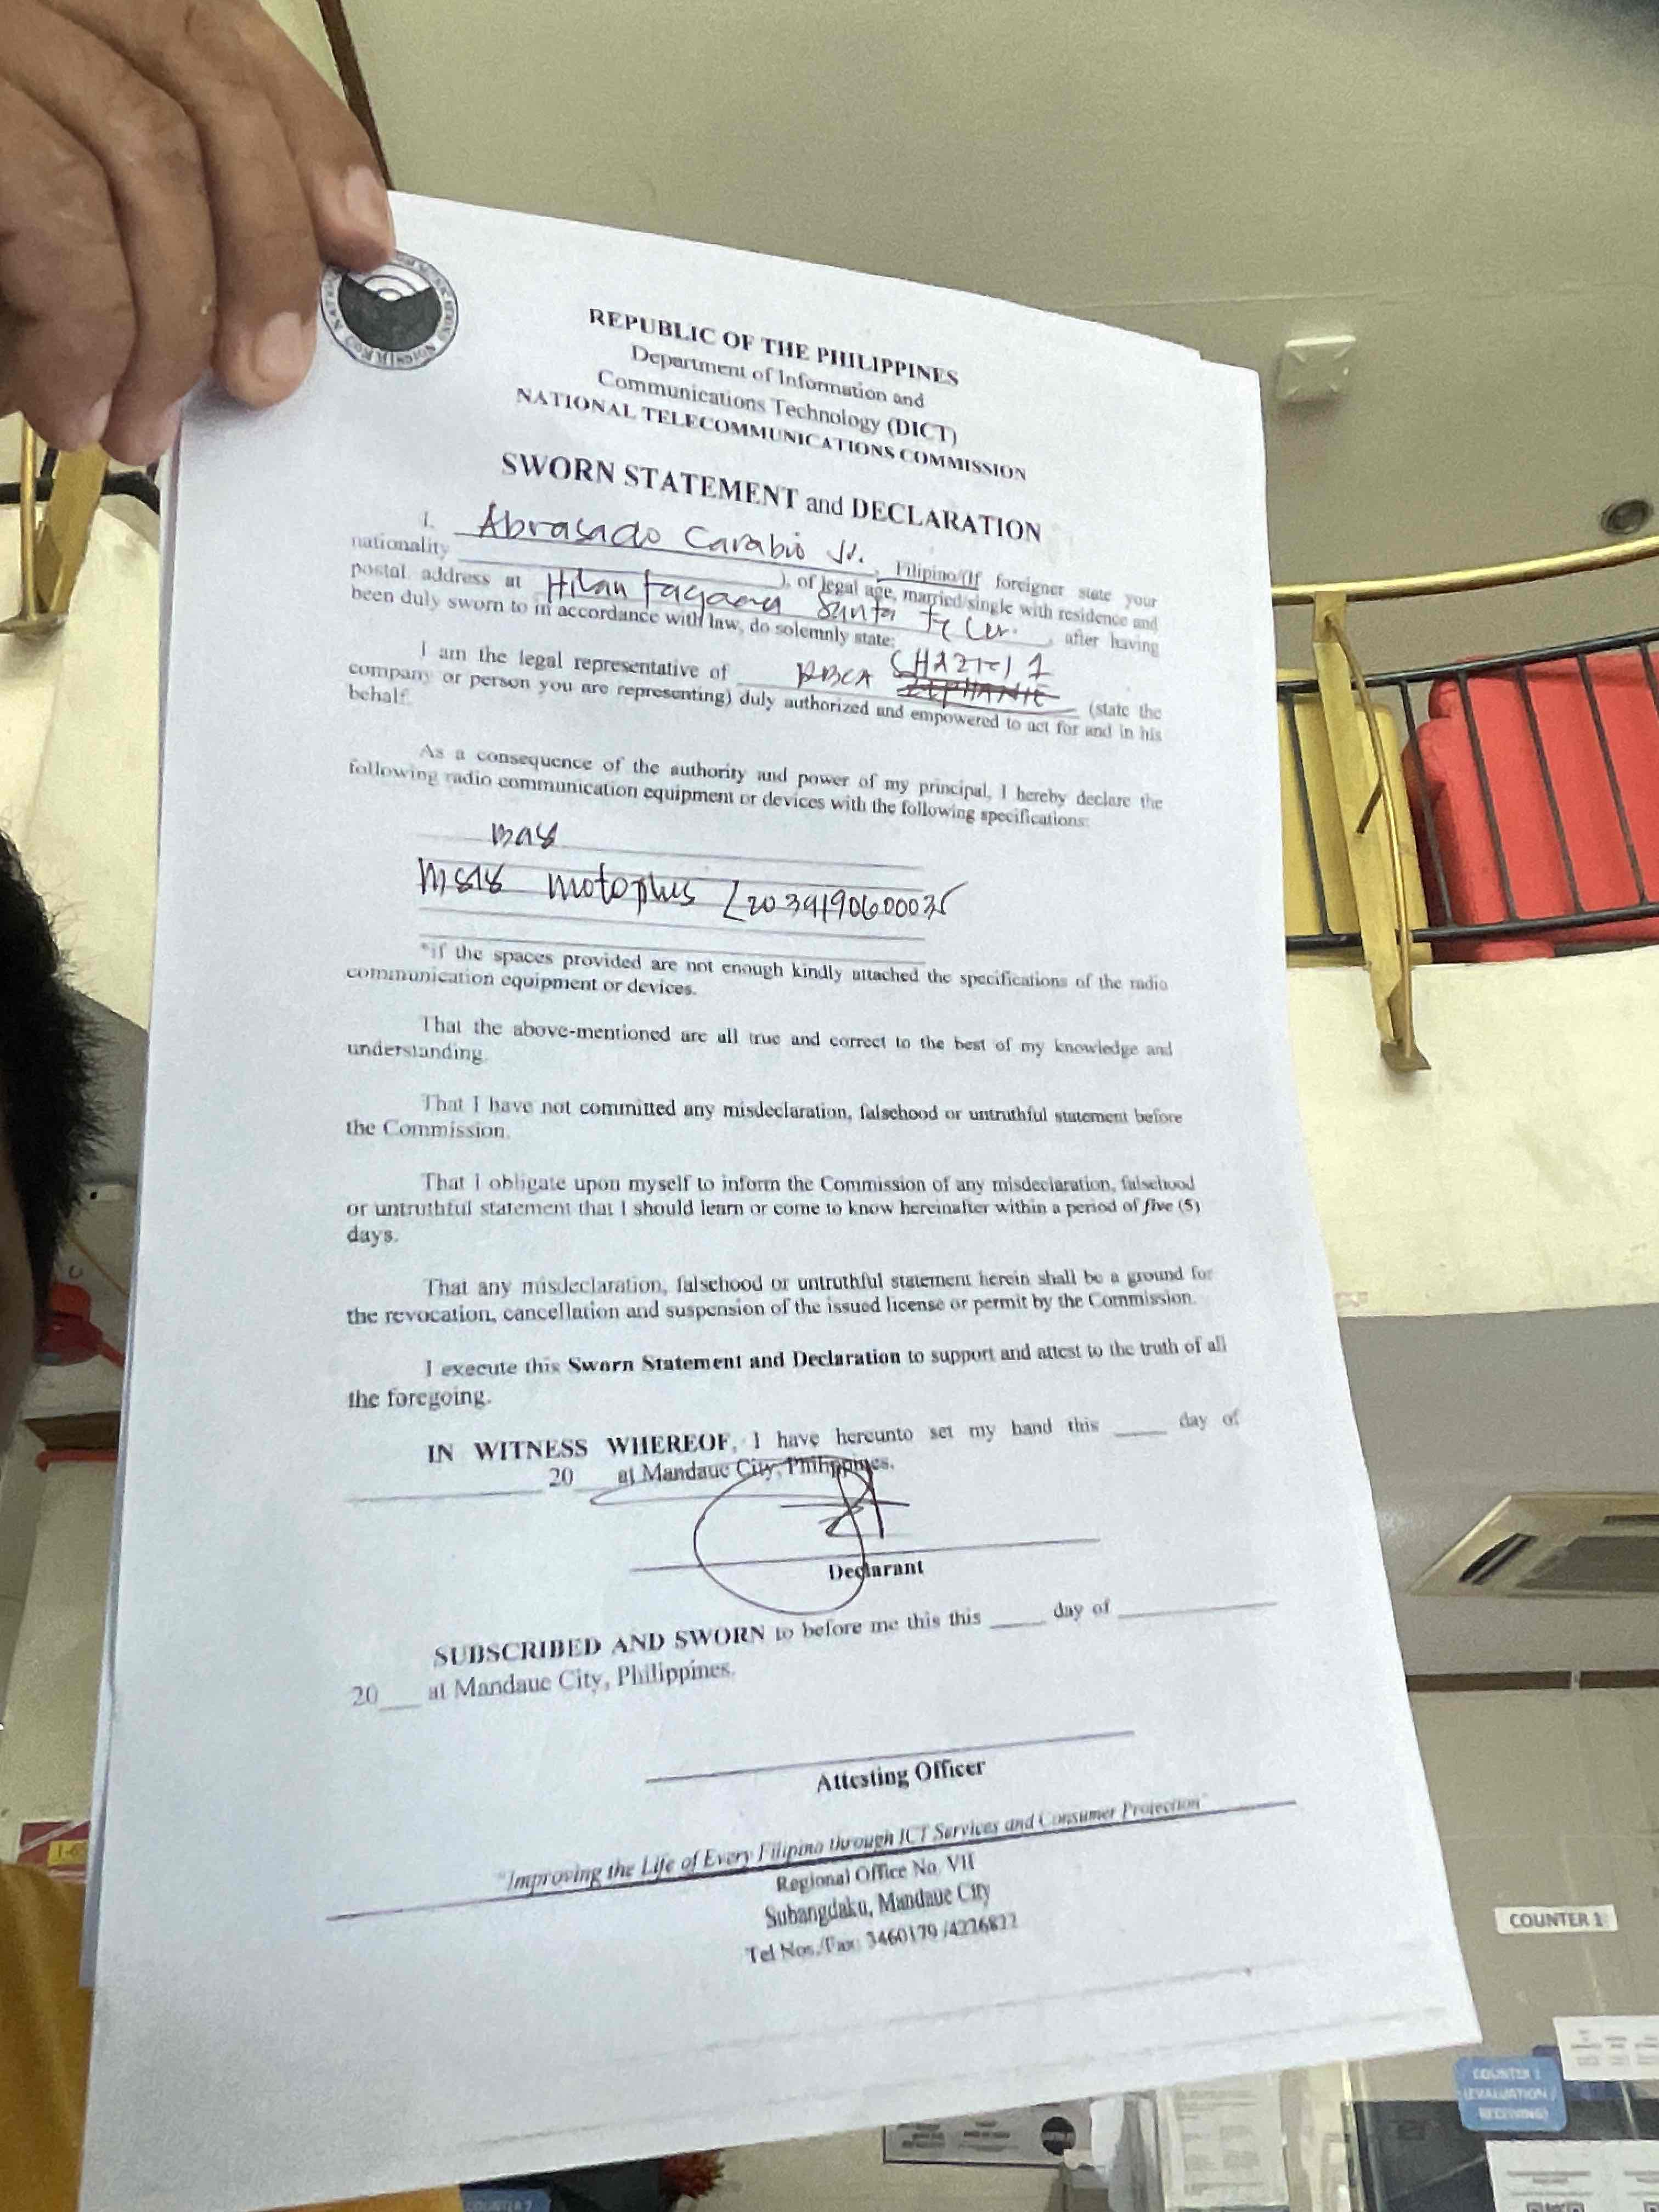 REPUBLIC OF THE PHILIPPINES
Department of Information and
Communications Technology (DICT)
NATIONAL TELECOMMUNICATIONS COMMISSION
SWORN STATEMENT and DECLARATION
I, Abrasado Carabio Jr., Filipino/(If foreigner state your
nationality ), of legal age, married/single with residence and
postal address at Hilan tagaana Santa Fe , after having
been duly sworn to in accordance with law, do solemnly state:
I am the legal representative of RBCA (state the
company or person you are representing) duly authorized and empowered to act for and in his
behalf.
As a consequence of the authority and power of my principal, I hereby declare the
following radio communication equipment or devices with the following specifications:
motoplus
*if the spaces provided are not enough kindly attached the specifications of the radio
communication equipment or devices.
That the above-mentioned are all true and correct to the best of my knowledge and
understanding.
That I have not committed any misdeclaration, falsehood or untruthful statement before
the Commission.
That I obligate upon myself to inform the Commission of any misdeclaration, falsehood
or untruthful statement that I should learn or come to know hereinafter within a period of five (5)
days.
That any misdeclaration, falsehood or untruthful statement herein shall be a ground for
the revocation, cancellation and suspension of the issued license or permit by the Commission.
I execute this Sworn Statement and Declaration to support and attest to the truth of all
the foregoing.
IN WITNESS WHEREOF, I have hereunto set my hand this ____ day of
____ 20__ at Mandaue City, Philippines.
Declarant
SUBSCRIBED AND SWORN to before me this this ____ day of ____
20___ at Mandaue City, Philippines.
Attesting Officer
"Improving the Life of Every Filipino through ICT Services and Consumer Protection"
Regional Office No. VII
Subangdaku, Mandaue City
Tel Nos./Fax: 3460179 /4226822
COUNTER 1
COUNTER 1
(EVALUATION /
RECEIVING)
COUNTER 7